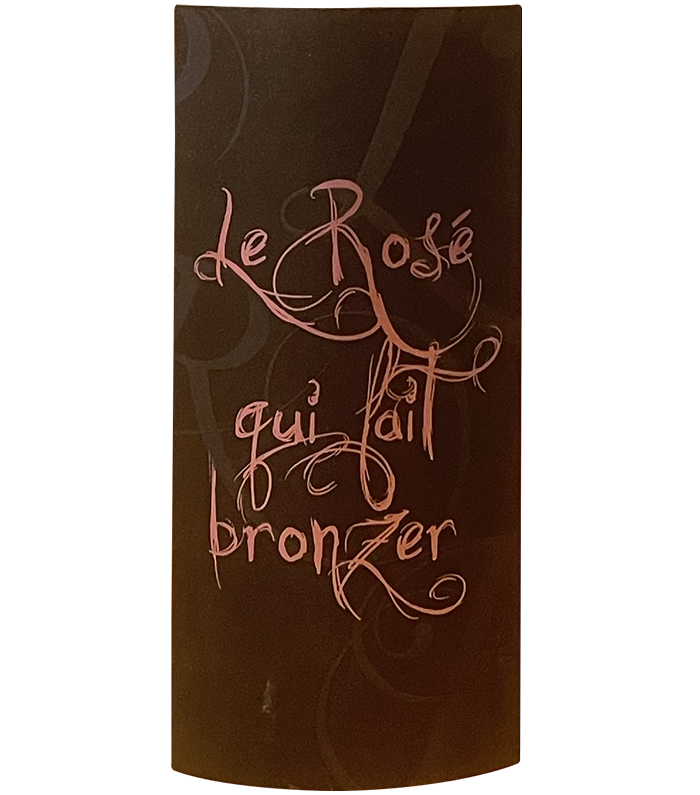 Le Rosé
qui fait
bronzer